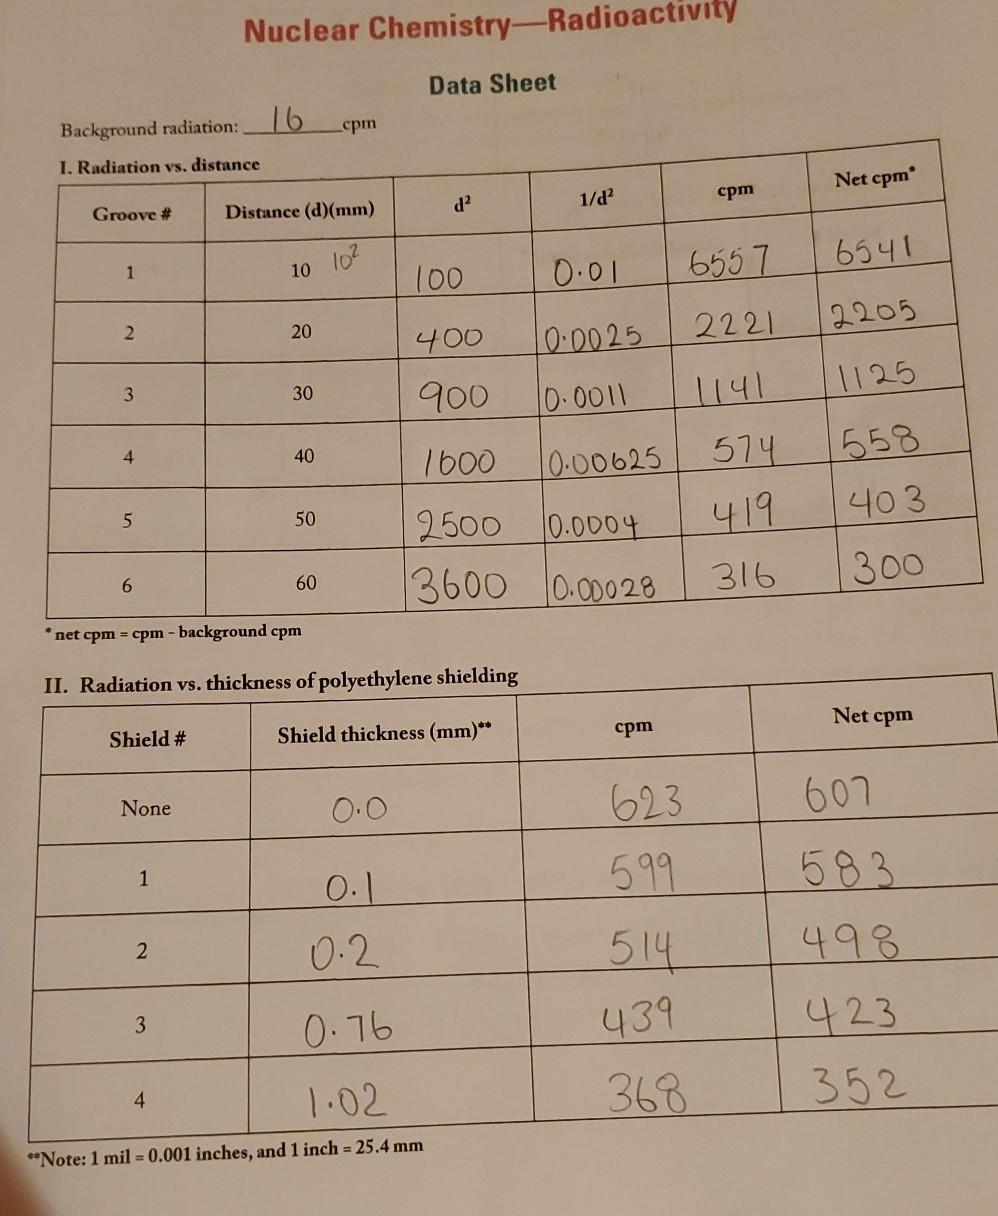 Nuclear Chemistry—Radioactivity
Data Sheet
Background radiation: 16 cpm
I. Radiation vs. distance
Groove # Distance (d)(mm) d² 1/d² cpm Net cpm*
1 10 10² 100 0.01 6557 6541
2 20 400 0.0025 2221 2205
3 30 900 0.0011 1141 1125
4 40 1600 0.00625 574 558
5 50 2500 0.0004 419 403
6 60 3600 0.00028 316 300
*net cpm = cpm - background cpm
II. Radiation vs. thickness of polyethylene shielding
Shield # Shield thickness (mm)** cpm Net cpm
None 0.0 623 607
1 0.1 599 583
2 0.2 514 498
3 0.76 439 423
4 1.02 368 352
**Note: 1 mil = 0.001 inches, and 1 inch = 25.4 mm